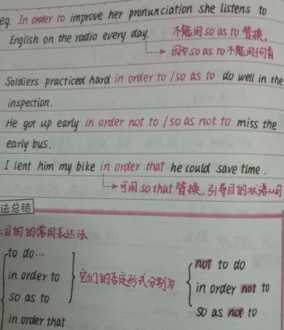 eg. In order to improve her pronunciation she listens to
English on the radio every day. 不能用so as to 替换,
因为so as to不能用于句首
Soldiers practiced hard in order to / so as to do well in the
inspection.
He got up early in order not to / so as not to miss the
early bus.
I lent him my bike in order that he could save time.
可用so that 替换, 引导目的状语从句
法总结
目的的常用表达法
to do...
in order to
so as to
in order that
它们的否定形式分别为
not to do
in order not to
so as not to